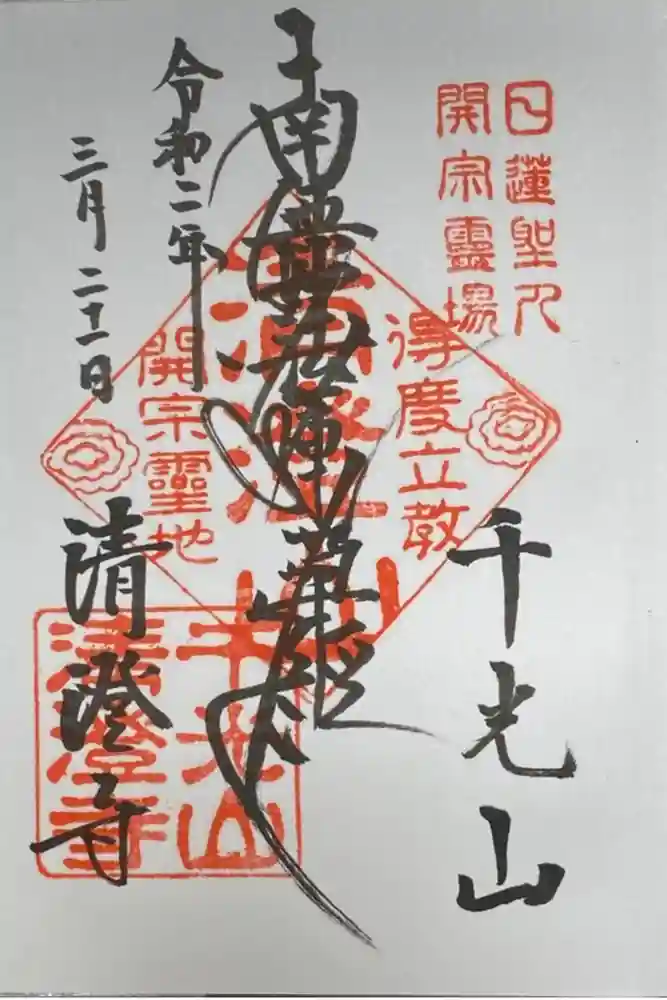 日蓮聖人
開宗靈場
千光山
得度立教
清澄山
開宗靈地
南無妙法蓮華経
令和二年
三月二十一日
清澄寺
千光山
清澄寺